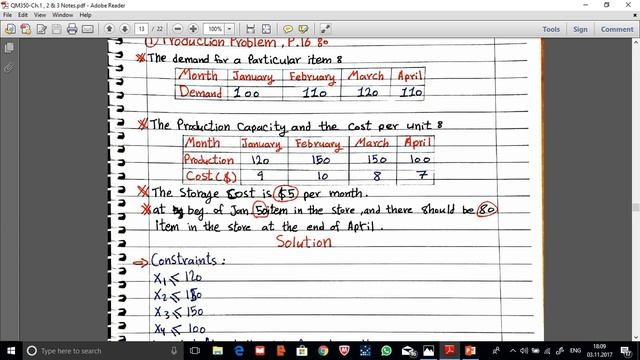 QM350-Ch.1 , 2 & 3 Notes.pdf - Adobe Reader
File Edit View Window Help
13 / 22
Tools Sign Comment
① Production Problem, P.16 80
The demand for a Particular item 8
Month January February March April
Demand 100 110 120 110
The Production Capacity and the Cost per unit 8
Month January February March April
Production 120 150 150 100
Cost ($) 9 10 8 7
The Storage Cost is $5 per month.
at beg. of Jan 50 item in the store, and there should be 80
Item in the store at the end of April.
Solution
Constraints :
X1 ≤ 120
X2 ≤ 150
X3 ≤ 150
X4 ≤ 100
Type here to search
ENG
18:09
03.11.2017